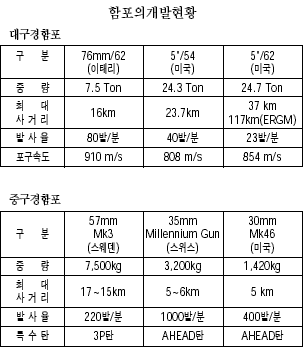 함포의개발현황
대구경함포
구 분 76mm/62 5"/54 5"/62
(이태리) (미국) (미국)
중 량 7.5 Ton 24.3 Ton 24.7 Ton
최 대 16km 23.7km 37 km
사 거 리 117km(ERGM)
발 사 율 80발/분 40발/분 23발/분
포구속도 910 m/s 808 m/s 854 m/s
중구경함포
구 분 57mm 35mm 30mm
Mk3 Millennium Gun Mk46
(스웨덴) (스위스) (미국)
중 량 7,500kg 3,200kg 1,420kg
최 대 17~15km 5~6km 5 km
사 거 리
발 사 율 220발/분 1000발/분 400발/분
특 수 탄 3P탄 AHEAD탄 AHEAD탄